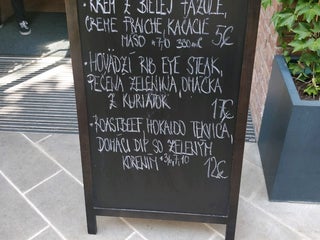 • KRÉM Z BIELEJ FAZULE,
CREME FRAICHE, KAČACIE
MÄSO *7,10 330ml 5€
• HOVÄDZÍ RIB EYE STEAK,
PEČENÁ ZELENINA, OMÁČKA
Z KURIATOK
17€
• ROASTBEEF, HOKAIDO TEKVICA,
DOMÁCI DIP SO ZELENÝM
KORENÍM *3,7,10 12€